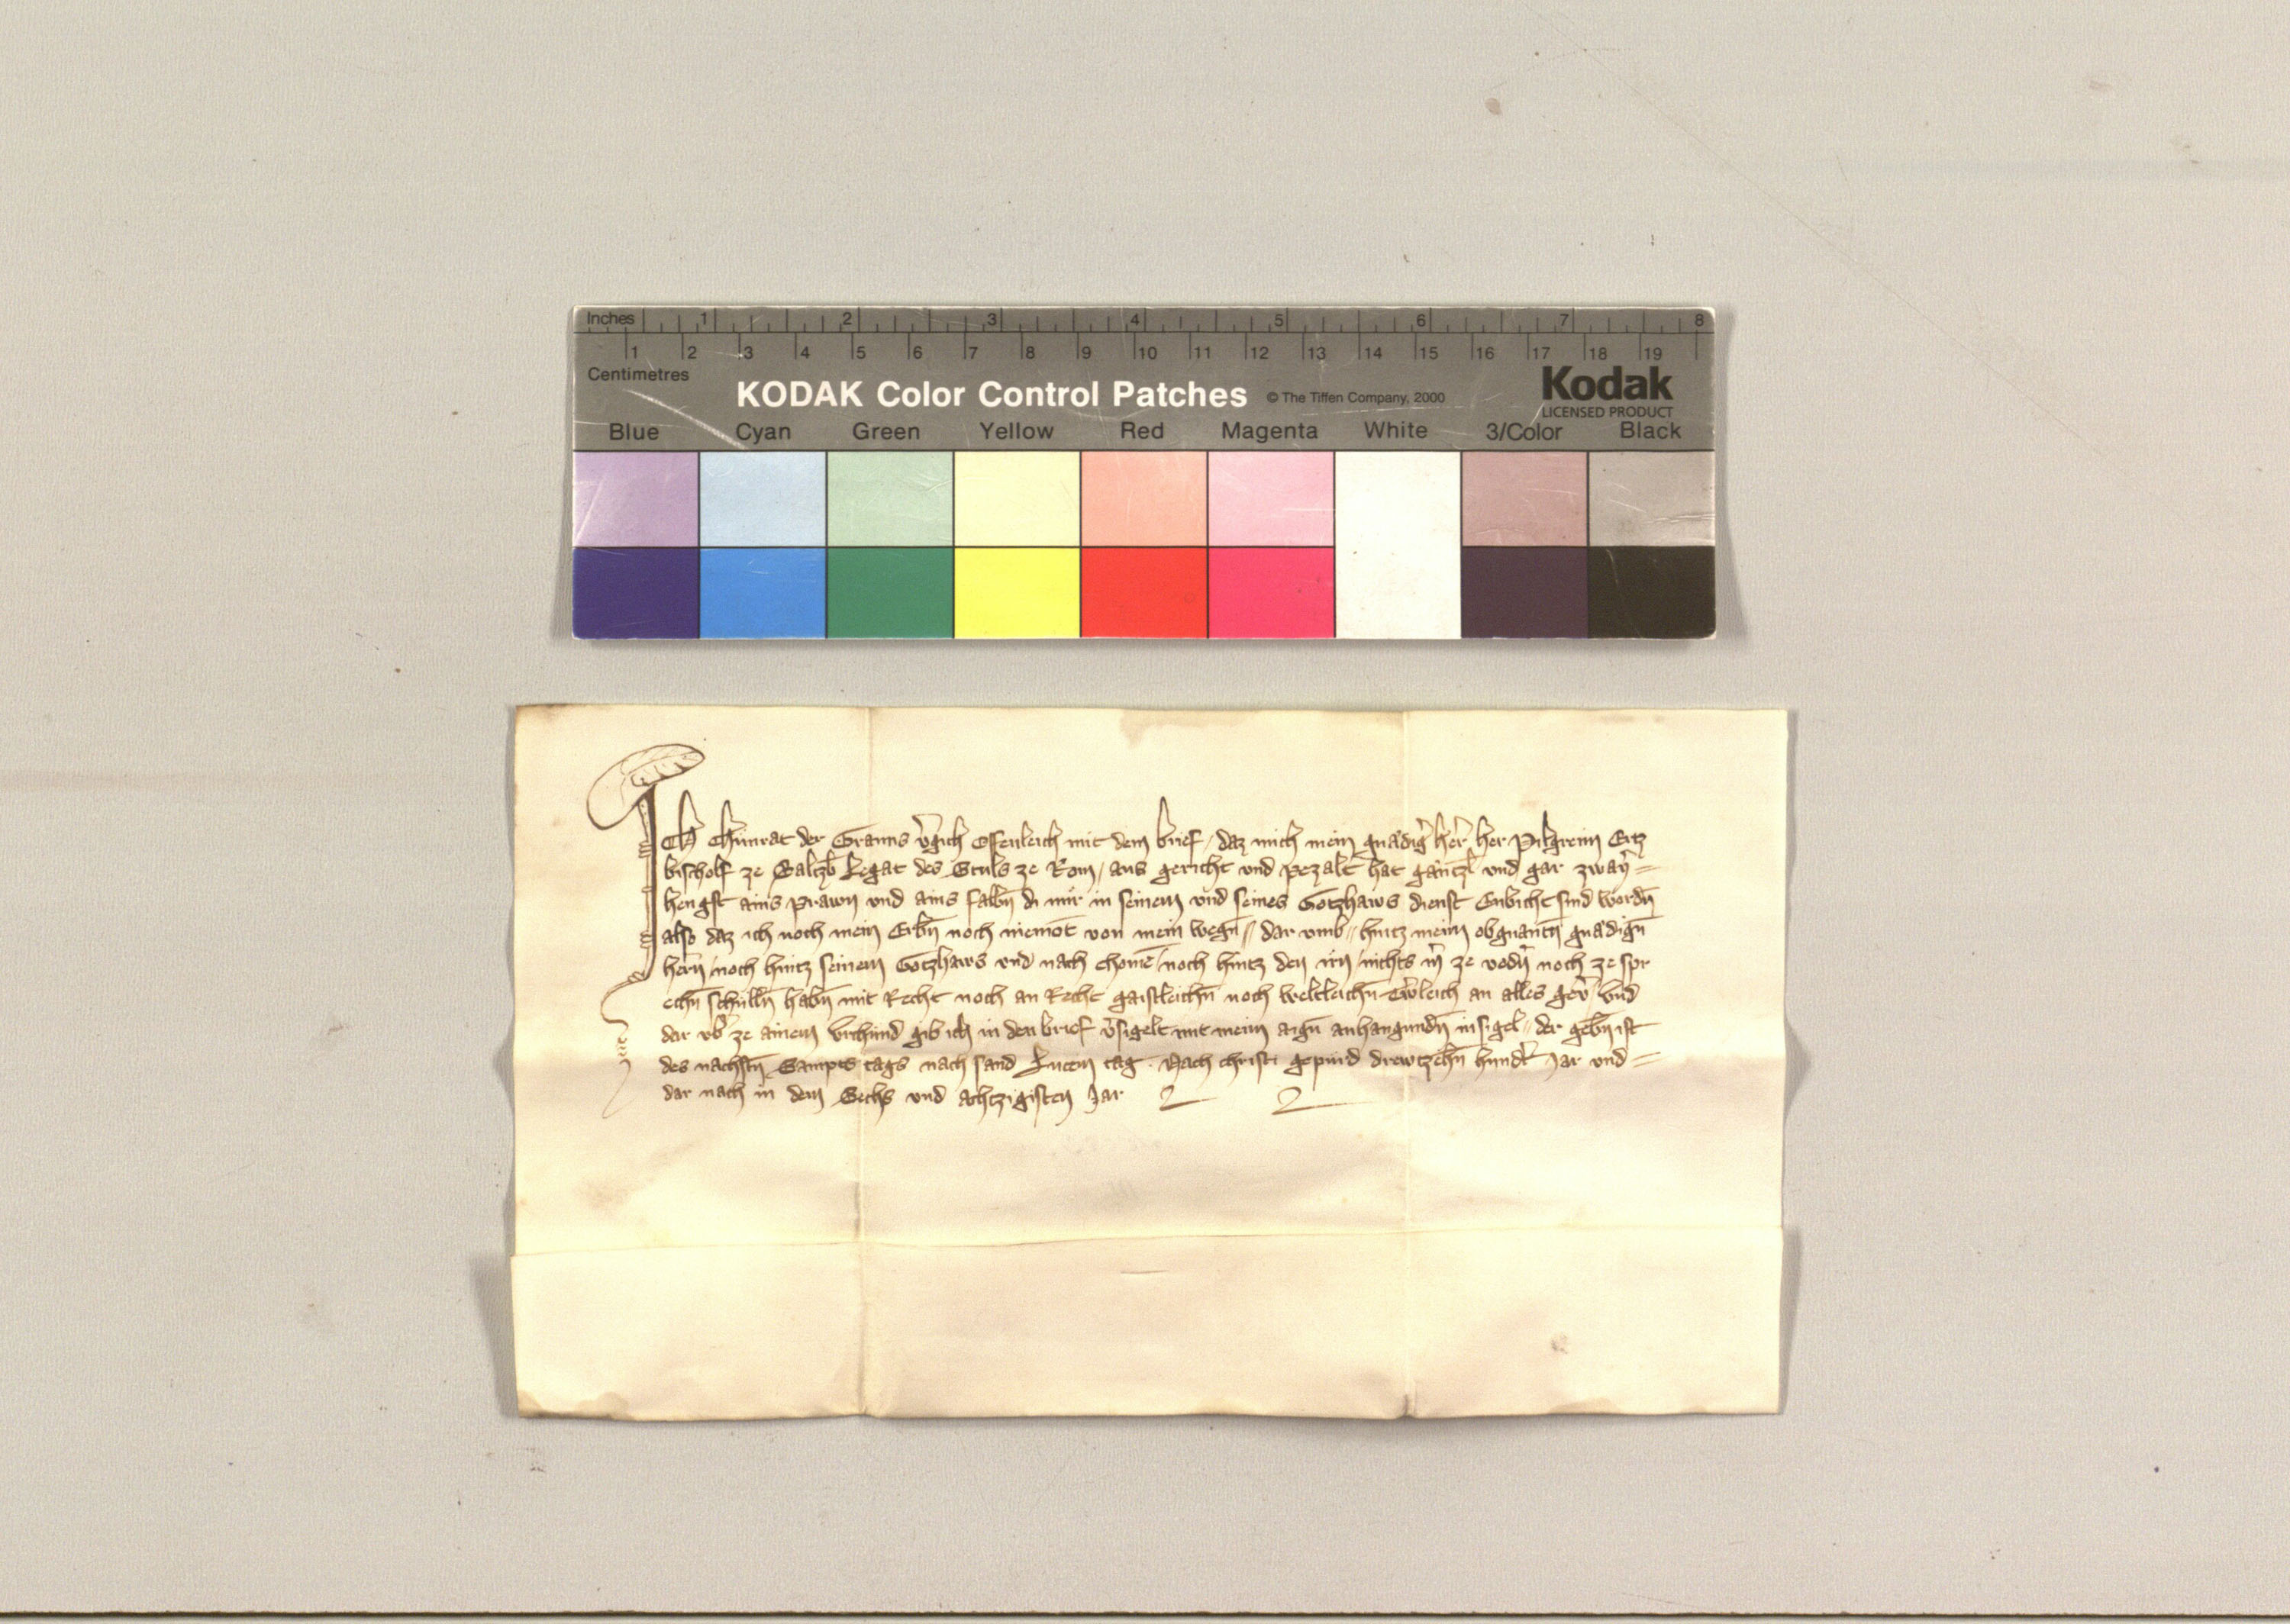 Inches 1 2 3 4 5 6 7 8
1 2 3 4 5 6 7 8 9 10 11 12 13 14 15 16 17 18 19
Centimetres
KODAK Color Control Patches © The Tiffen Company, 2000 Kodak
LICENSED PRODUCT
Blue Cyan Green Yellow Red Magenta White 3/Color Black
Ich Chunrat der Granns v̄gich Offenleich mit dem brief / daz mich mein gnädiḡ her̄ her Pilgreim Ertz
bischolf ze Saltzb̄ Legat des Stuls ze Rom / aus gericht vnd pezalt hat gäntzl̄ vnd gar zwaÿ =
hengst ains prawn vnd ains falbn̄ di mir in seinem vnd seines Gotzhaws dienst Enbicht sind wordn̄
also daz ich noch mein Erbn̄ noch niemōt von mein wegn̄ // dar vmb // hintz meim obgnantn̄ gnädign̄
hern̄ / noch hintz seinem Gotzhaws vnd nach chomē / noch hintz den irn / nichts m̄ ze vodn̄ noch ze spr
echn̄ schulln̄ habn̄ mit Recht noch an Recht gaistleichn̄ noch weltleichn̄ Tr̄leich an alles gev̄ vnd
dar vb̄ ze ainem vrchund gib ich in den brief v̄sigelt mit meim aign̄ anhangundn̄ insigel // der gebn̄ ist
des nachstn̄ Sampts tags nach sand Lucein tag . Nach christi gepurd drewtzehn̄ hundt̄ Jar vnd =
dar nach in dem Sechs vnd achtzigisten Jar